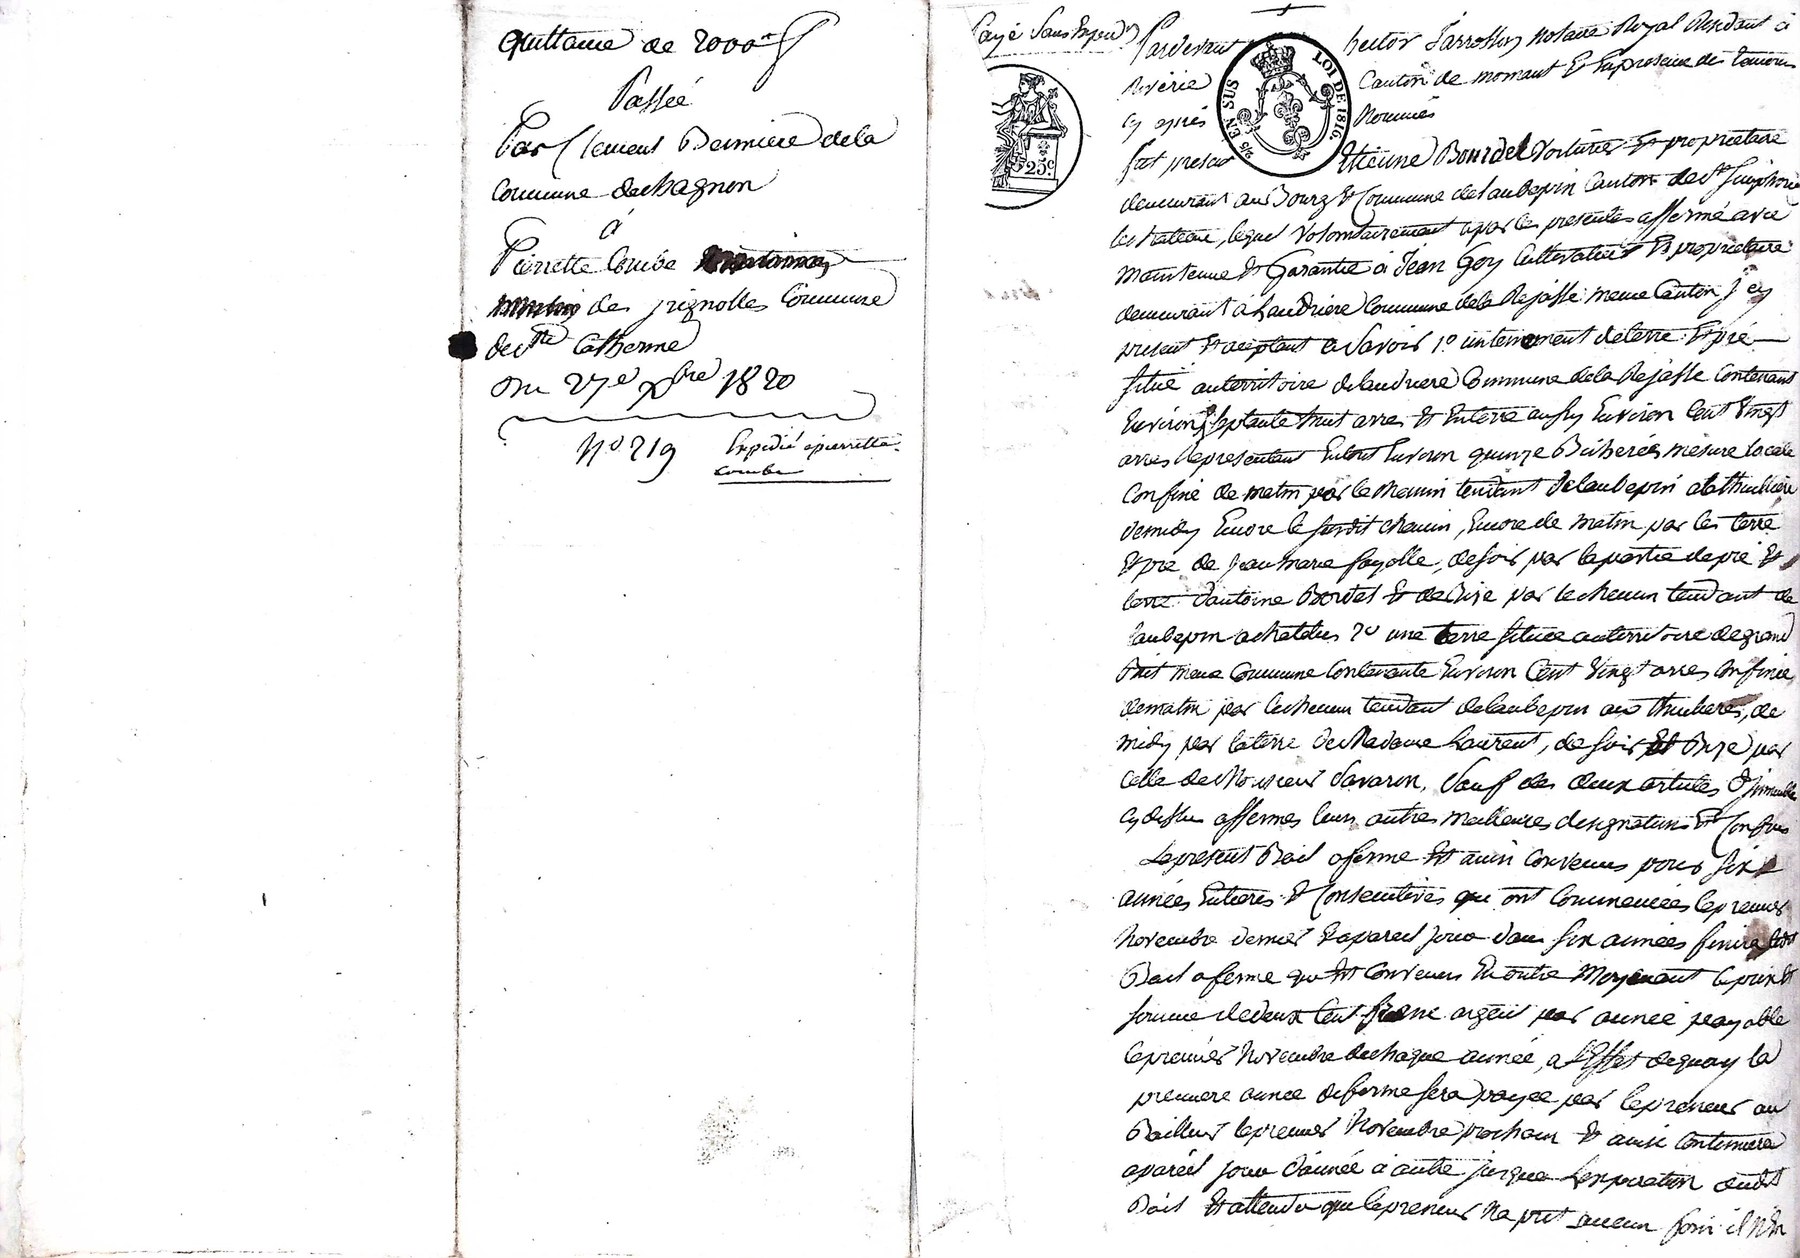 Quittance de 2000 ft
Passée
Par Clement Bermiere de la
Commune de chagnon
à
Pierrette Combe
des pignolles Commune
de Ste Catherine
Du 27e xbre 1820
No 219 Expedié a pierrette
combe
Payé Sans Expedon
Pardevant hector Jarrosson notaire Royal Residant à
Riverie Canton de mornant Et En presence des temoins
cy après Nommés
EN SUS LOI DE 1816.
25c
fut present Etienne Bourdel Voiturier Et proprietaire
demeurant au Bourg Et Commune de laubepin Canton de St Simphorien
le chateau, lequel Volontairement a par les presentes affermé avec
maintenue Et Garantie à Jean Goy Cultivateur Et proprietaire
demeurant à Laudriere Commune de la Rajasse meme Canton J cy
present Et acceptant a Savoir 1o un tennement de terre Et pré
Situé au territoire de laudriere Commune de la Rajasse Contenant
Environ Septante huit arres Et En terre aussy Environ Cent Vingt
arres representent En tout Environ quinze Bicherées mesure locale
Confiné de matin par le chemin tendant de laubepin a la thuilliere
de midy Encore le surdit chemin, Encore de matin par les terre
Et pré de jean marie fayolle, de soir par la partie de pré Et
terre d'antoine Bordel Et de Bize par le chemin tendant de
laubepin a chatelus 2o une terre Située au territoire de grand
Buit meme Commune Contenante Environ Cent Vingt arres Confinée
de matin par le chemin tendant de laubepin aux thuilieres, de
midy par la terre de Madame Laurent, de soir Et Bize par
Celle de Monsieur Savaron, Sauf des deux articles d'immeuble
cy dessus affermés leurs autres meilleures designations Et Confins
Le present Bail a ferme Est ainsi Convenus pour Six
années Entieres Et Consecutives qui ont Commencées le premier
Novembre dernier Et a pareil jour dans Six années finira ledit
Bail a ferme qui Est Convenus En outre Moyenant le prix Et
Somme de deux Cent frans argent par année payable
le premier Novembre de chaque année, a l'Effet de quoy la
premiere année de ferme sera payée par le preneur au
Bailleur le premier Novembre prochain Et ainsi Continuera
a pareil jour d'année à autre jusqua l'expiration dudt
Bail Et attendu que le preneur na prit aucun foin il N'en